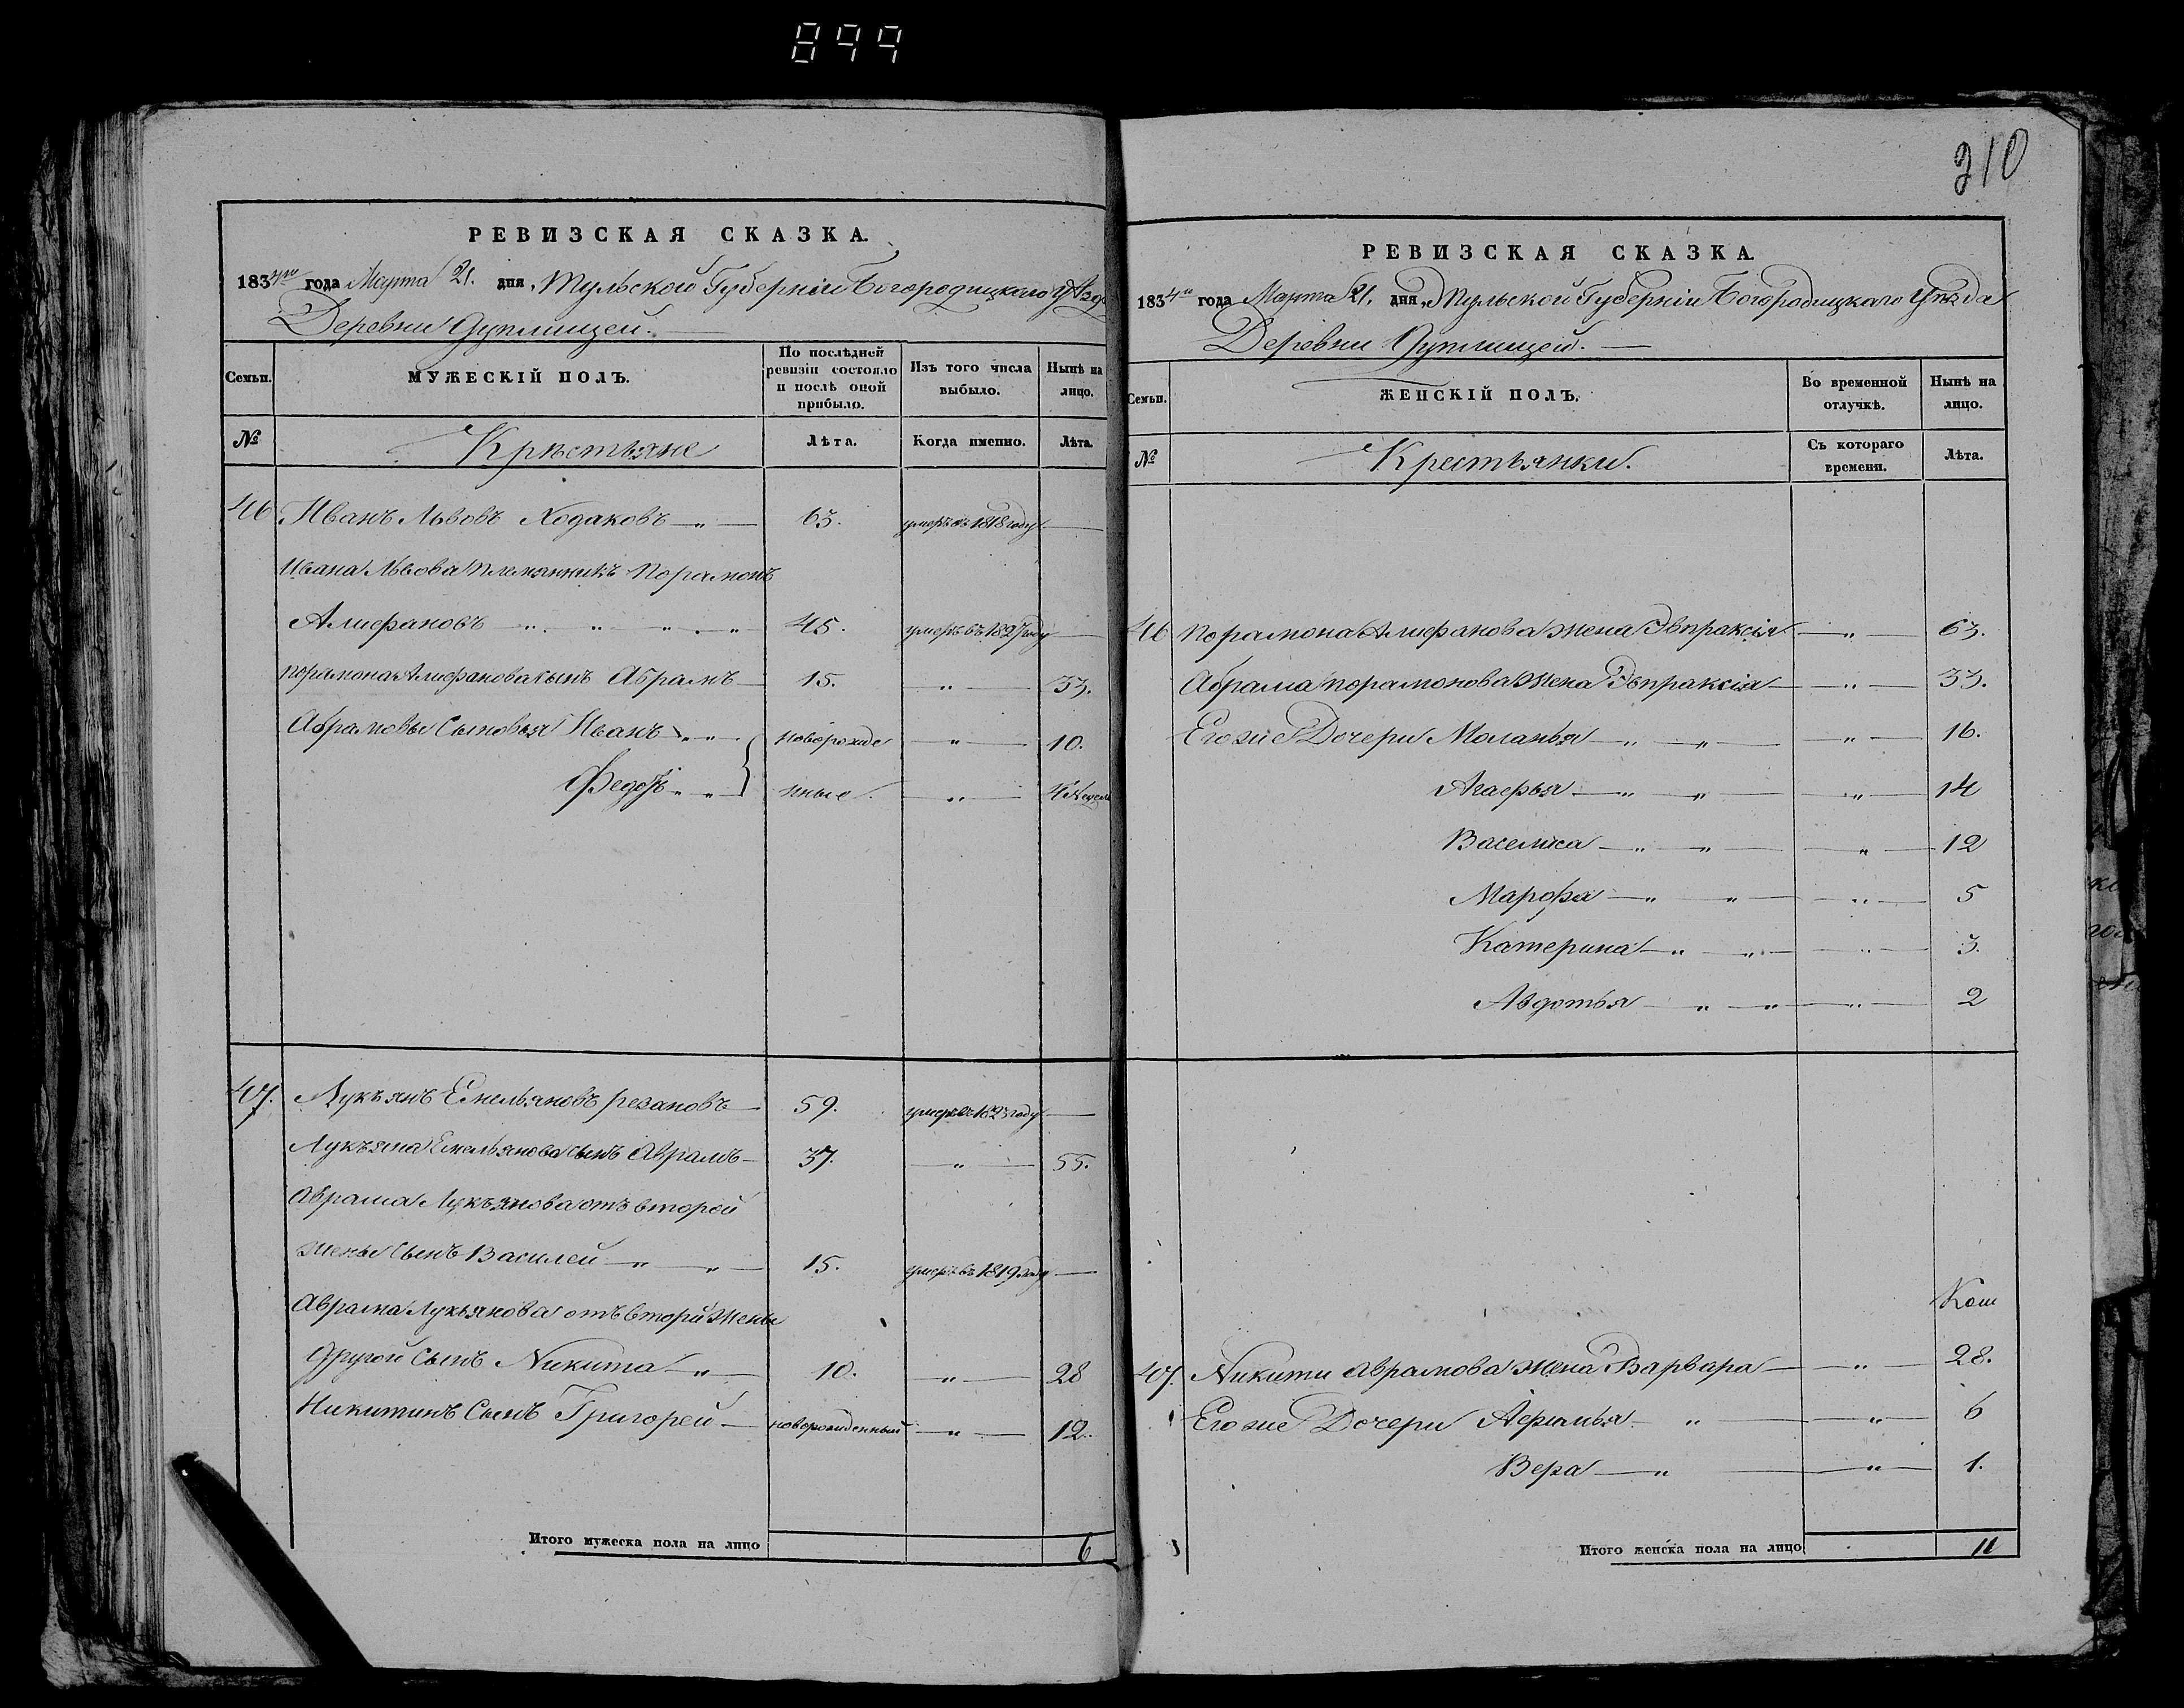 899
РЕВИЗСКАЯ СКАЗКА.
1834го года Марта 21. дня, Тульской Губерніи Богородицкаго Уѣзда
Деревни Дуплищей.
Семьи.
МУЖЕСКІЙ ПОЛЪ.
По послѣдней ревизіи состояло и послѣ оной прибыло.
Изъ того числа выбыло.
Нынѣ на лицо.
№
Крѣстьяне
Лѣта.
Когда именно.
Лѣта.
46 Иванъ Львовъ Ходаковъ 63. умеръ въ 1818 году
Ивана Львова племянникъ Порамонъ
Алифановъ 45. умеръ въ 1827 году
Порамона Алифанова сынъ Абрамъ 15. 33.
Абрамовы Сыновья Иванъ новорожде 10.
Федоръ нные. 4 Недели
47. Лукъянъ Емельяновъ резановъ 59. умеръ въ 1823 году
Лукъяна Емельянова сынъ Аврамъ 37. 55.
Аврама Лукъянова отъ второй
жены Сынъ Василей 15. умеръ въ 1819 году
Аврама Лукъянова отъ вторй жены
другой Сынъ Никита 10. 28
Никитинъ Сынъ Григорей новорожденный 12.
Итого мужеска пола на лицо 6
210
РЕВИЗСКАЯ СКАЗКА.
1834го года Марта 21. дня, Тульской Губерніи Богородицкаго Уѣзда
Деревни Дуплищей.
Семьи.
ЖЕНСКІЙ ПОЛЪ.
Во временной отлучкѣ.
Нынѣ на лицо.
№
Крестьянки.
Съ котораго времени.
Лѣта.
46 Порамона Алифанова жена Эвпраксія 63.
Абрама порамонова Жена Эвпраксія 33.
Его же Дочери Маланья 16.
Агафья 14
Васелиса 12
Марфа 5
Катерина 3.
Авдотья 2
47. Никити Аврамова жена Варвара 28.
Его же Дочери Афимья 6
Вера 1.
Итого женска пола на лицо 11